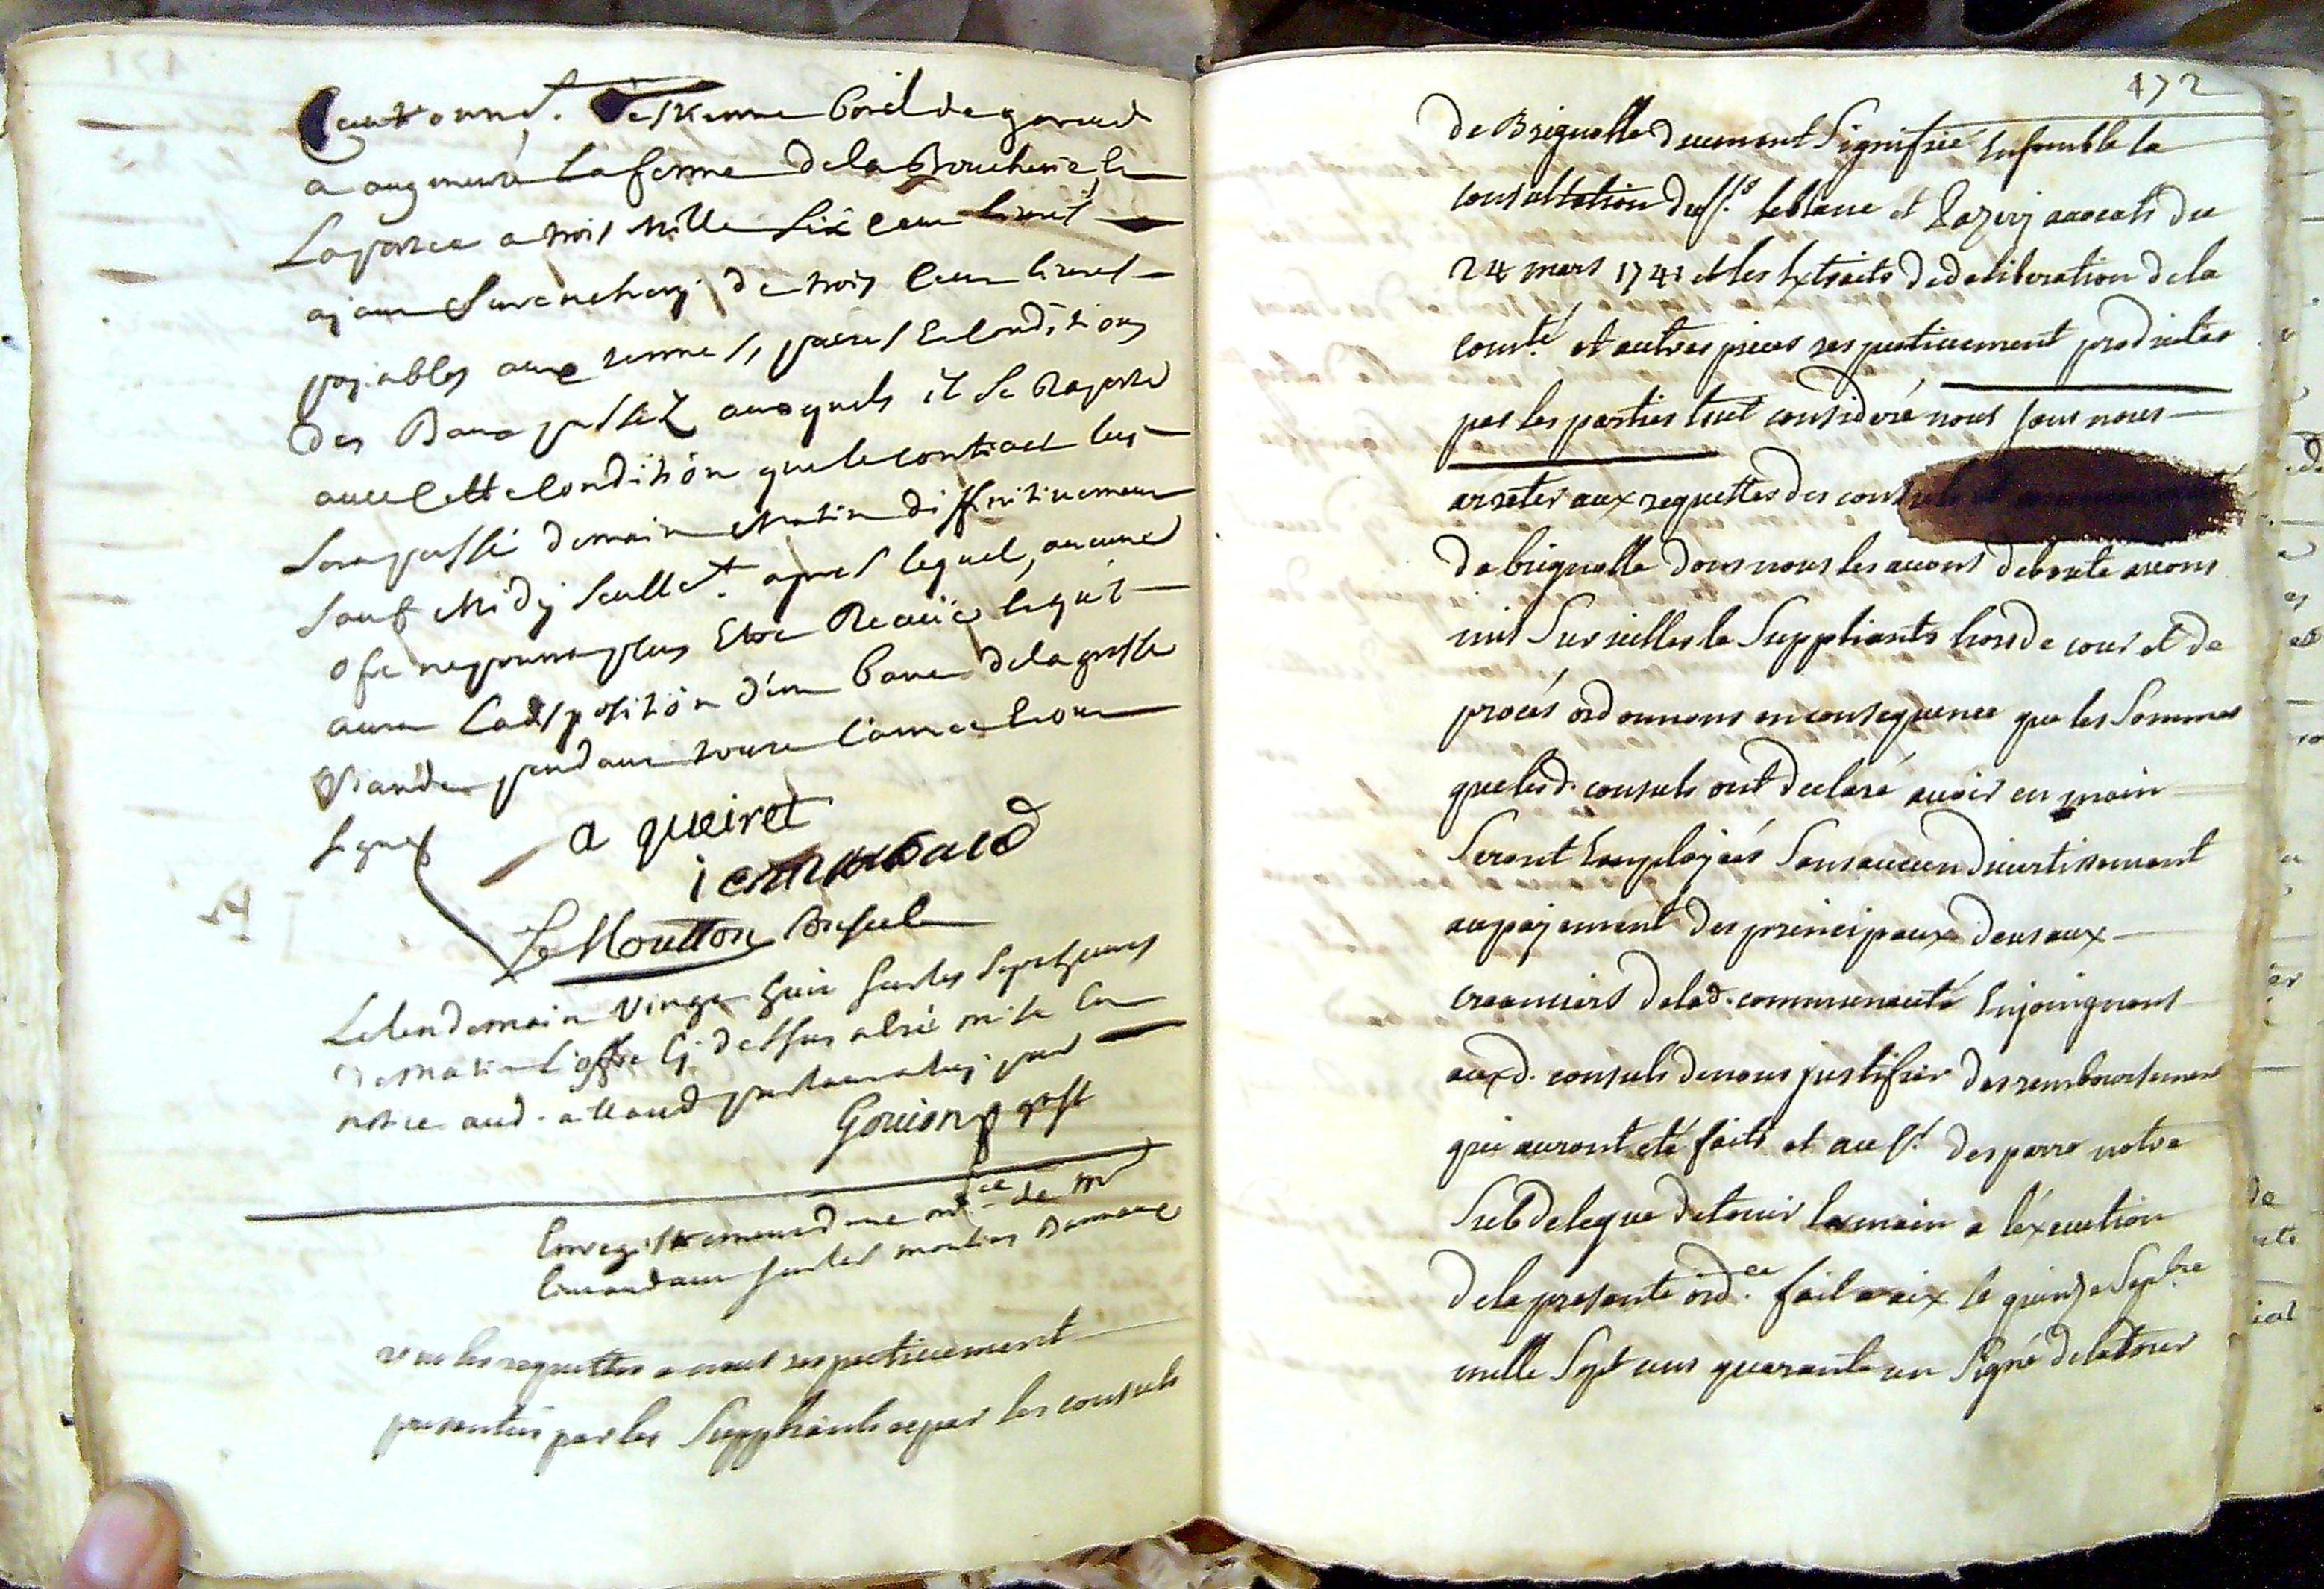 a augmenté la ferme de la Boucherie et
La portée a trois Mille Six Cens livres
ajant Surencheri de trois Cens livres
pajables aux termes, pactes Et Conditions
des Baux passez auxquels il Se Raporte
avec Cette Condition que le contract luy
Sera passé demain Matin diffinitivement
Sauf Midy Seullet. apres lequel, aucune
ofre ne pourra plus Etre Recaüe lequel
aura La disposition d'un banc de la grosse
Viande pendant toute L'année Et ont
Signés a queiret
Le Moutton Consul
Le lendemain Vingt huit Sur les Sept heures
du matin L'offre Cy dessus a été mise en
notice aud. allaud parlant a luy par
Goujon gref
Enregistrement dune ordce de Mr
Lintendant Sur les moulins Bannaux
veu les requettes a nous respectivement
presentées par les Supphants et par les consuls
172
de Brignolle deument Signifiée Ensemble la
consultation dess.rs leblanc et Pazery avocats du
24 mars 1741 et les Extraits de deliberation de la
comté. et autres pieces respectivement produites
par les parties tout consideré nous sans nous
arreter aux requettes des consuls et communauté
de brignolle dons nous les avons deboute avons
mis Sur icelles le Suppliants hors de cour et de
procés ordonnons en consequence que les Sommes
que lesd. consuls ont declaré avoir en main
Seront Employées Sans aucun divertissement
au pajement des principaux deus aux
creanciers de lad. communauté Enjoingnons
auxd. consuls de nous justiffier des remboursement
qui auront eté faits et au Sr. desparra notre
Subdelegue de tenir la main a l'éxecution
de la presente ord.ce fait a aix le quinze Sepbre
mille Sept cens quarante un Signé de la tour